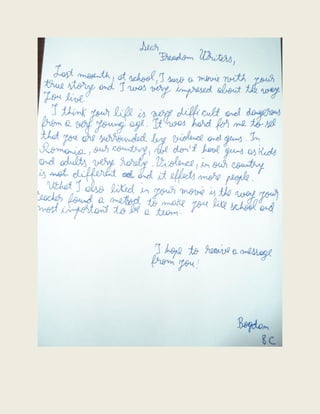 Dear
Freedom Writers,
Last mounth, at school, I saw a movie with your
true story and I was very impresed about the way
you live.
I think your life is very difficult and dangerous
from a very young age. It was hard for me to see
that you are surrounded by violence and guns. In
Romania, our country, we don't have guns as kids
and adults, verye rarely. Violence, in our country
is not different and it effects more people.
What I also liked in your movie is the way your
teacher found a metod to make you like school and
most important to be a team.
I hope to receive a message
from you!
Bogdan
8 C